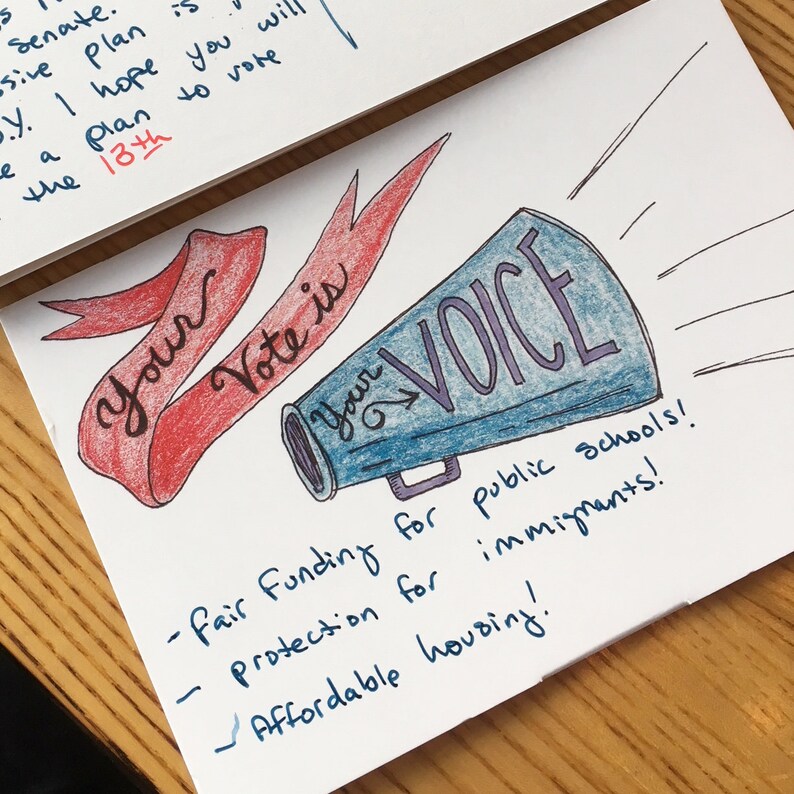 Senate.
plan is
I hope you will
a plan to vote
the 13th
Your
Vote is
Your
VOICE
- Fair Funding for public schools!
- protection for immigrants!
- Affordable housing!